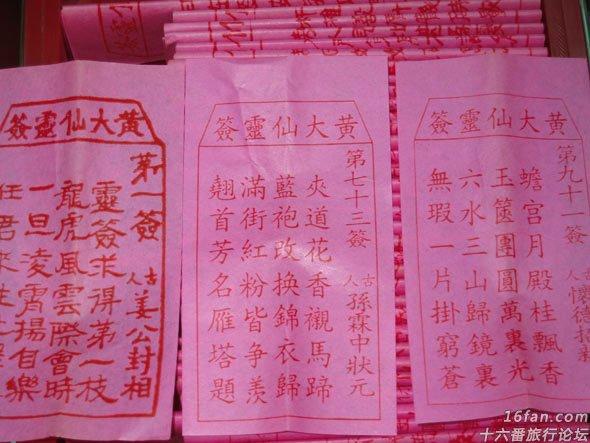 黃大仙靈簽
第一簽
古人
姜公封相
靈簽求得第一枝
龍虎風雲際會時
一旦凌霄揚自樂
任君來往
黃大仙靈簽
第七十三簽
古人
孫霖中狀元
夾道花香襯馬蹄
藍袍改換錦衣歸
滿街紅粉皆爭羨
翹首芳名雁塔題
黃大仙靈簽
第九十一簽
古人
懷德招親
蟾宮月殿桂飄香
玉篋團圓萬裏光
六水三山歸鏡裏
無瑕一片掛窮蒼
16fan.com
十六番旅行论坛